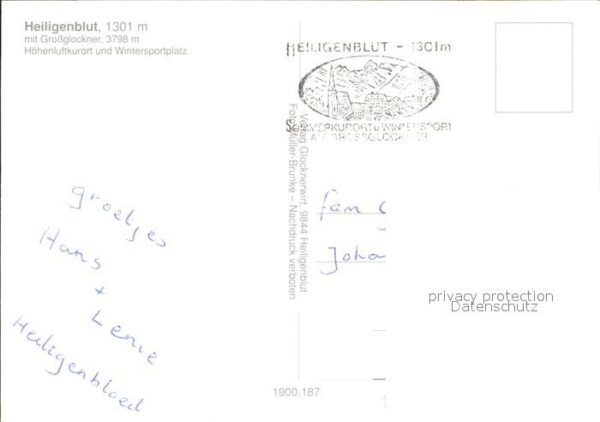 Heiligenblut, 1301 m
mit Großglockner, 3798 m
Höhenluftkurort und Wintersportplatz
HEILIGENBLUT - 1301m
SOMMERKURORT u WINTERSPORT
AM GROSSGLOCKNER
Verlag Glocknerwirt, 9844 Heiligenblut
Foto: Müller-Brunke – Nachdruck verboten
groetjes
Hans
+
Lenie
Heiligenbloed
fam
Joha
privacy protection
Datenschutz
1900.187